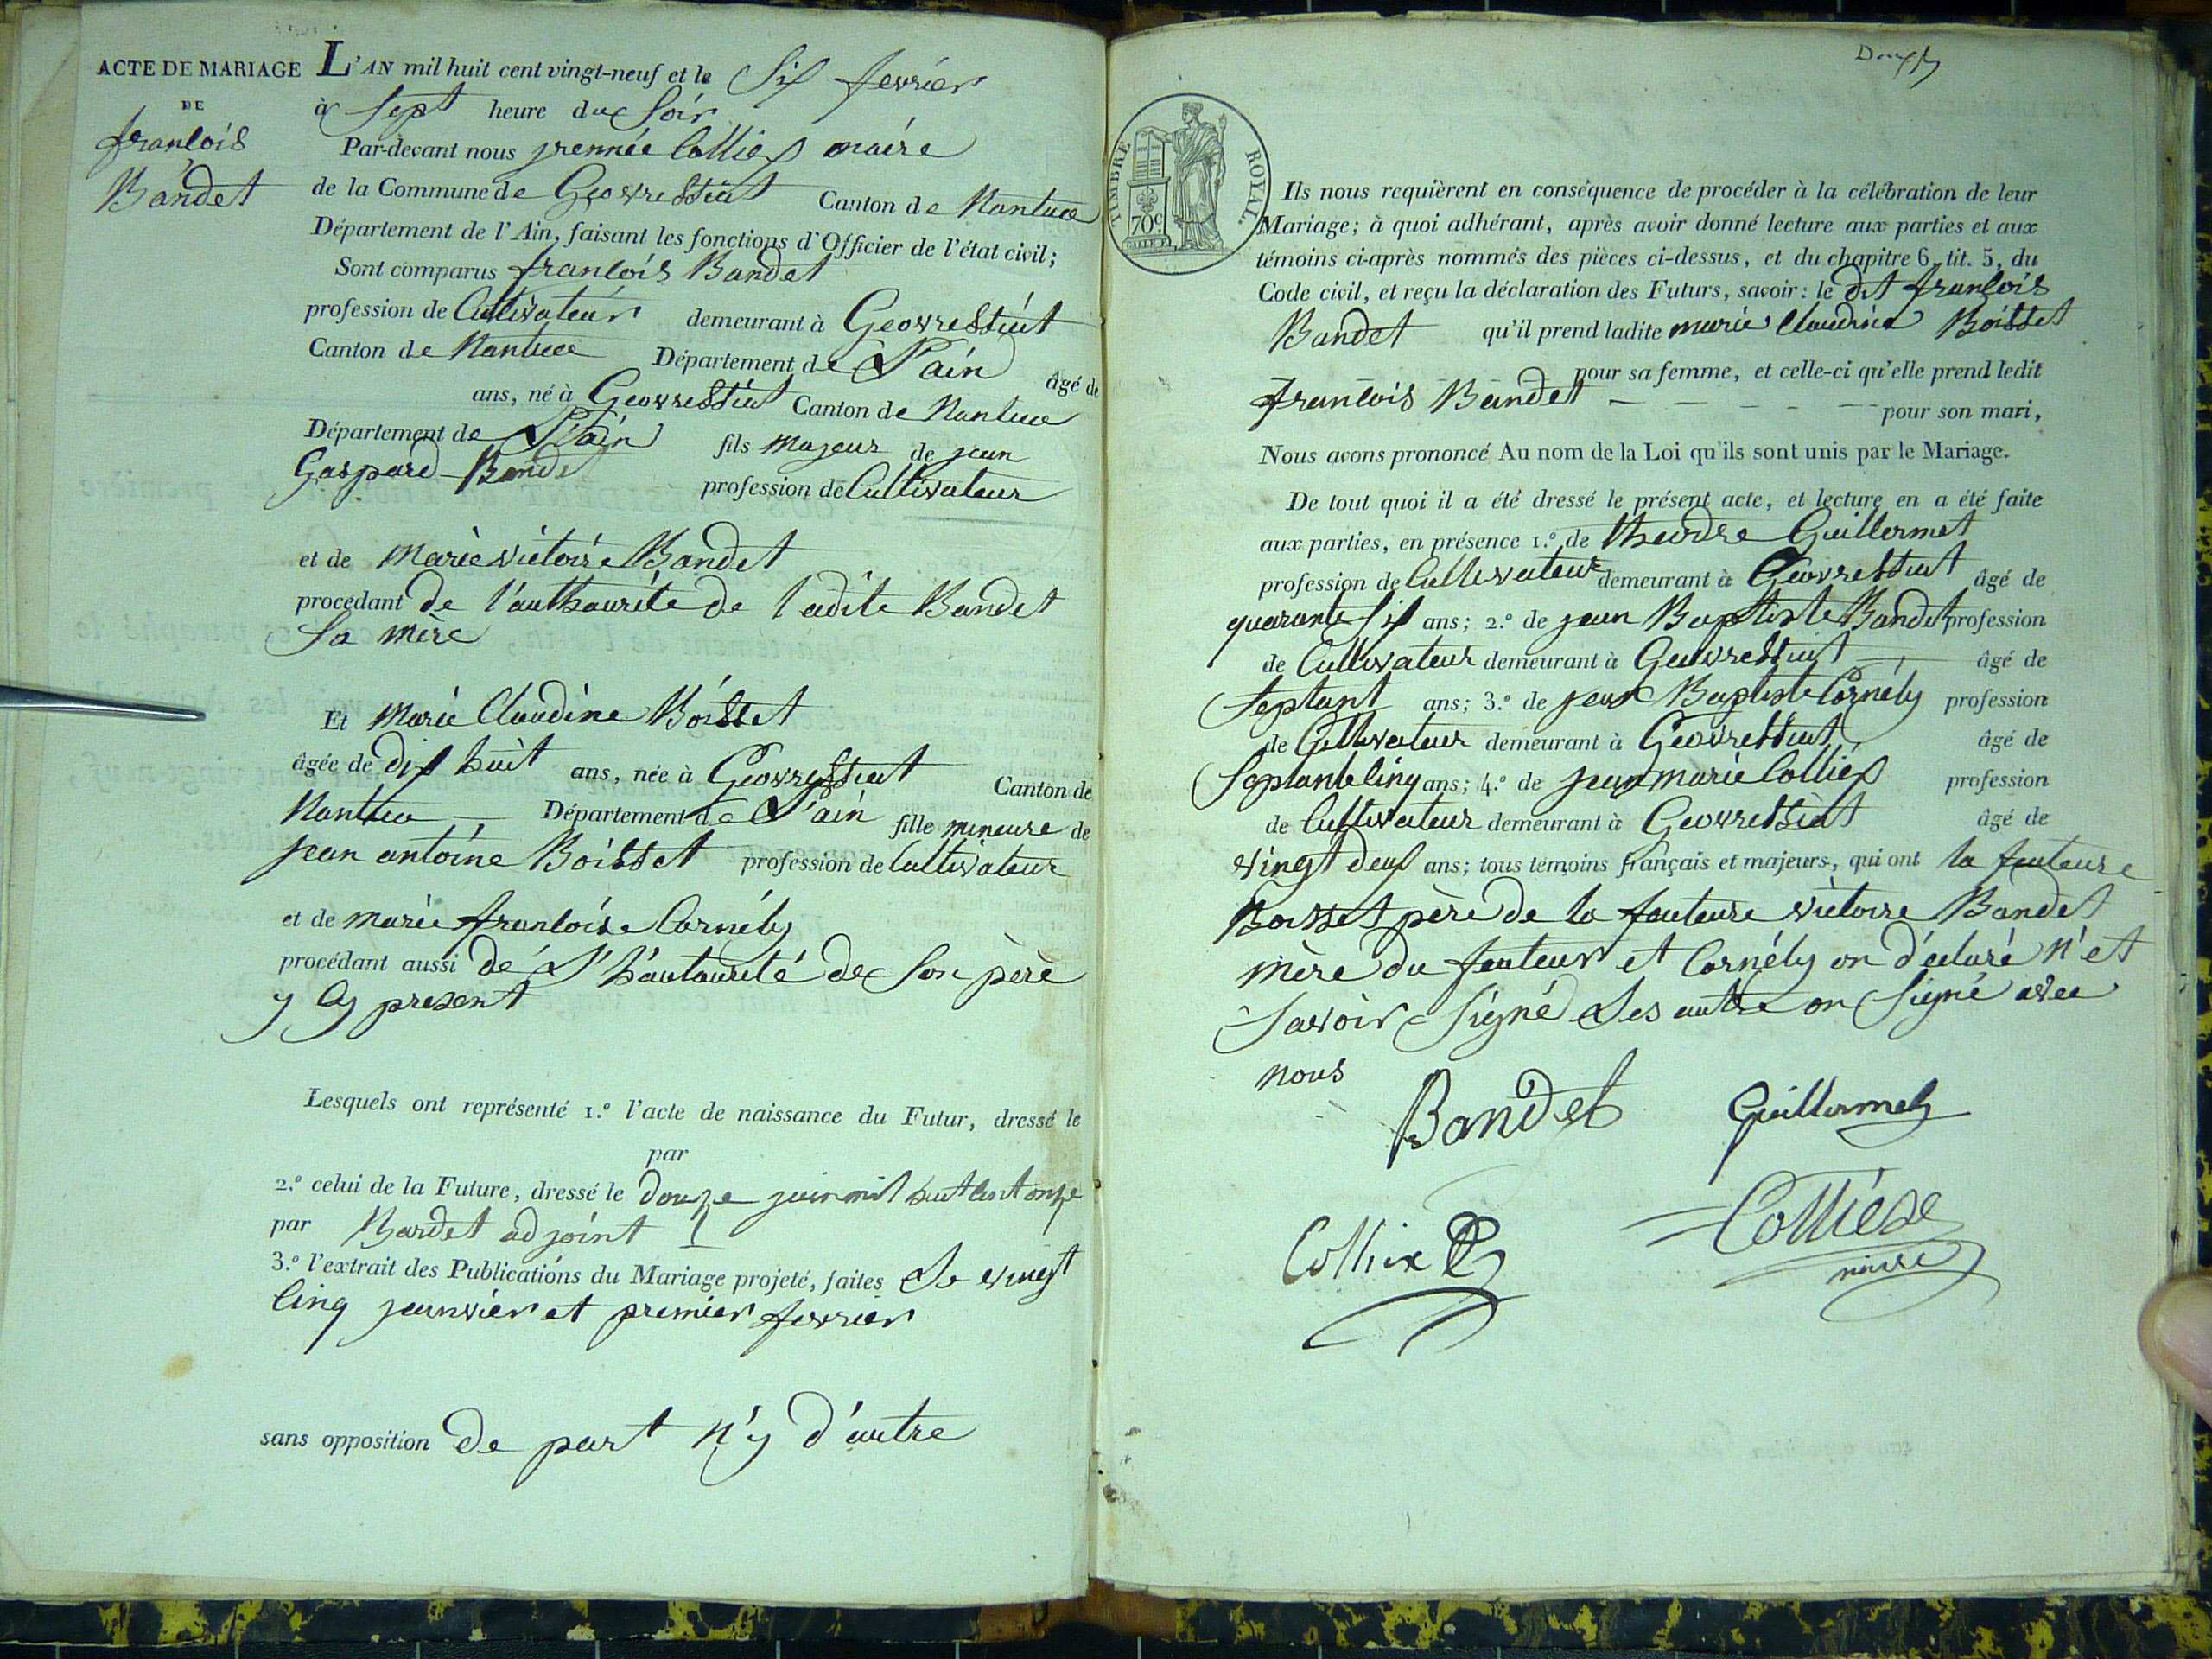 ACTE DE MARIAGE
DE
françois
Bandet
L'AN mil huit cent vingt-neuf et le six fevrier
à sept heure du soir
Par-devant nous Colliex maire
de la Commune de Geovressiat Canton de Nantua
Département de l'Ain, faisant les fonctions d'Officier de l'état civil;
Sont comparus françois Bandet
profession de Cultivateur demeurant à Geovressiat
Canton de Nantua Département de L'ain âgé de
ans, né à Geovressiat Canton de Nantua
Département de L'ain fils majeur de jean
Gaspard Bandet profession de Cultivateur
et de Marie victoire Bandet
procédant de l'authaurité de ladite Bandet
sa mère
Et Marie Claudine Boisset
âgée de dix huit ans, née à Geovressiat Canton de
Nantua Département de L'ain fille mineure de
jean antoine Boisset profession de Cultivateur
et de marie françoise Cornély
procédant aussi de L'hautaurité de son père
y cy present
Lesquels ont représenté 1.° l'acte de naissance du Futur, dressé le
par
2.° celui de la Future, dressé le douze juin mil huit cent onze
par Bandet adjoint
3.° l'extrait des Publications du Mariage projeté, faites Le vingt
cinq janvier et premier fevrier
sans opposition de part n'y d'autre
TIMBRE ROYAL.
70c
Ils nous requièrent en conséquence de procéder à la célébration de leur
Mariage; à quoi adhérant, après avoir donné lecture aux parties et aux
témoins ci-après nommés des pièces ci-dessus, et du chapitre 6, tit. 5, du
Code civil, et reçu la déclaration des Futurs, savoir: le dit françois
Bandet qu'il prend ladite marie Claudine Boisset
pour sa femme, et celle-ci qu'elle prend ledit
françois Bandet — — — — — pour son mari,
Nous avons prononcé Au nom de la Loi qu'ils sont unis par le Mariage.
De tout quoi il a été dressé le présent acte, et lecture en a été faite
aux parties, en présence 1.° de theodre Guillermet
profession de Cultivateur demeurant à Geovressiat âgé de
quarante six ans; 2.° de jean Baptiste Bandet profession
de Cultivateur demeurant à Geovressiat âgé de
septant ans; 3.° de jean Baptiste Cornély profession
de Cultivateur demeurant à Geovressiat âgé de
septante cinq ans; 4.° de jean marie Colliex profession
de Cultivateur demeurant à Geovressiat âgé de
vingt deux ans; tous témoins français et majeurs, qui ont la feuteure
Boisset père de la fauteure victoire Bandet
mère du feuteur et Cornély on déclaré n'et
savoir signé Les autre on signé avec
nous
Bandet Guillermet
Colliex Colliex
maire